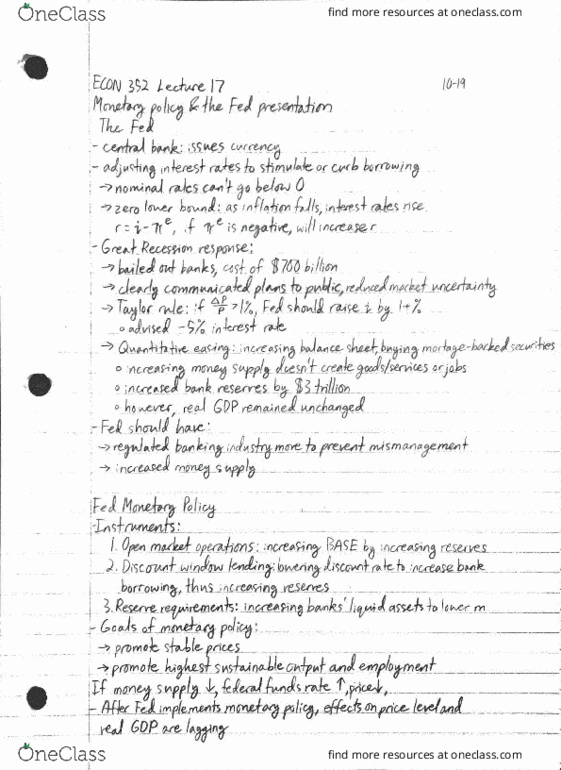 OneClass
find more resources at oneclass.com
ECON 352 Lecture 17
10-19
Monetary policy & the Fed presentation
The Fed
- central bank: issues currency
- adjusting interest rates to stimulate or curb borrowing
→ nominal rates can't go below 0
→ zero lower bound: as inflation falls, interest rates rise.
r = i - πᵉ, if πᵉ is negative, will increase r
- Great Recession response:
→ bailed out banks, cost of $700 billion
→ clearly communicated plans to public, reduced market uncertainty
→ Taylor rule: if ΔP/P > 1%, Fed should raise i by 1+%
o advised -5% interest rate
→ Quantitative easing: increasing balance sheet, buying mortage-backed securities
o increasing money supply doesn't create goods/services or jobs
o increased bank reserves by $3 trillion
o however, real GDP remained unchanged
- Fed should have:
→ regulated banking industry more to prevent mismanagement
→ increased money supply
Fed Monetary Policy
- Instruments:
1. Open market operations: increasing BASE by increasing reserves
2. Discount window lending: lowering discount rate to increase bank
borrowing, thus increasing reserves
3. Reserve requirements: increasing banks' liquid assets to lower m
- Goals of monetary policy:
→ promote stable prices
→ promote highest sustainable output and employment
If money supply ↓, federal funds rate ↑, price↓,
- After Fed implements monetary policy, effects on price level and
real GDP are lagging
OneClass
find more resources at oneclass.com